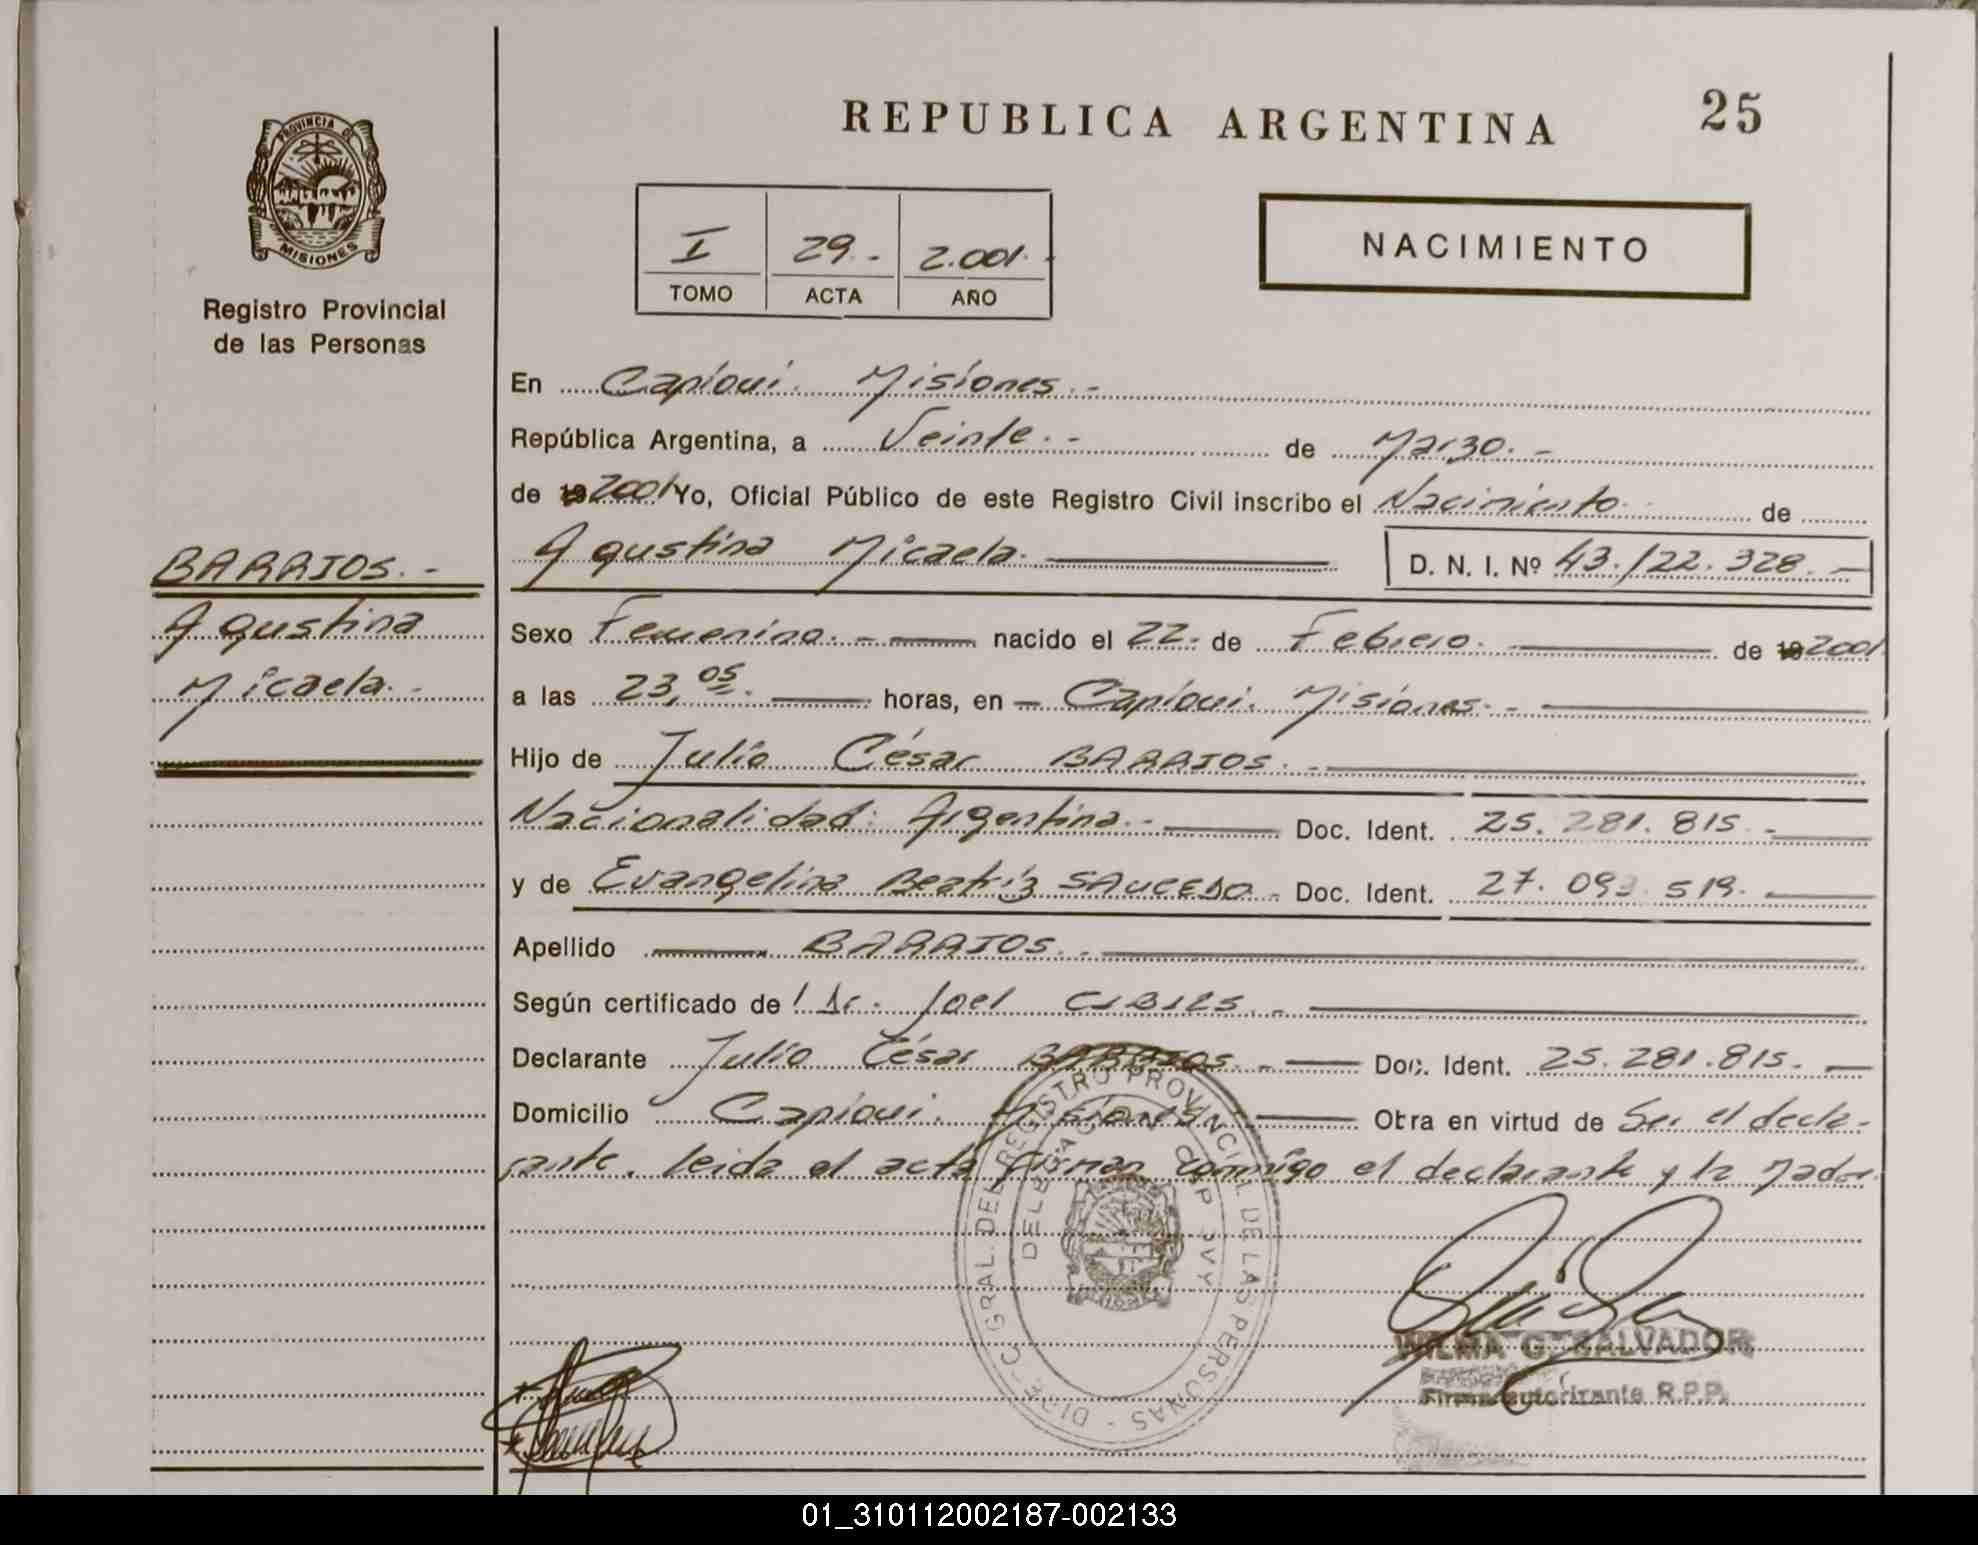 REPUBLICA ARGENTINA
25
PROVINCIA DE
MISIONES
Registro Provincial
de las Personas
I 29.- 2.001.-
TOMO ACTA AÑO
NACIMIENTO
En Capioui. Misiones.-
República Argentina, a Veinte.- de Marzo.-
de 2001 Yo, Oficial Público de este Registro Civil inscribo el Nacimiento de
Agustina Micaela. D. N. I. Nº 43.122.328.-
BARRIOS.-
Agustina
Micaela.-
Sexo Femenino.- nacido el 22. de Febrero. de 2001
a las 23,05. horas, en - Capioui. Misiones.-
Hijo de Julio César BARRIOS.-
Nacionalidad: Argentina.- Doc. Ident. 25.281.815.-
y de Evangelina Beatriz SAUCEDO.- Doc. Ident. 27.09 .519.
Apellido BARRIOS.-
Según certificado de: Dr. Joel CIBILS.-
Declarante Julio César BARRIOS.- Doc. Ident. 25.281.815.-
Domicilio Capioui. Misiones. Obra en virtud de Ser el decla-
rante. leida el acta firman conmigo el declarante y la Madre.
DIRECC GRAL. DEL REGISTRO PROVINCIAL DE LAS PERSONAS -
DELEGACION CAPIOVY
WILMA G. SALVADOR
Firma autorizante R.P.P.
01_310112002187-002133